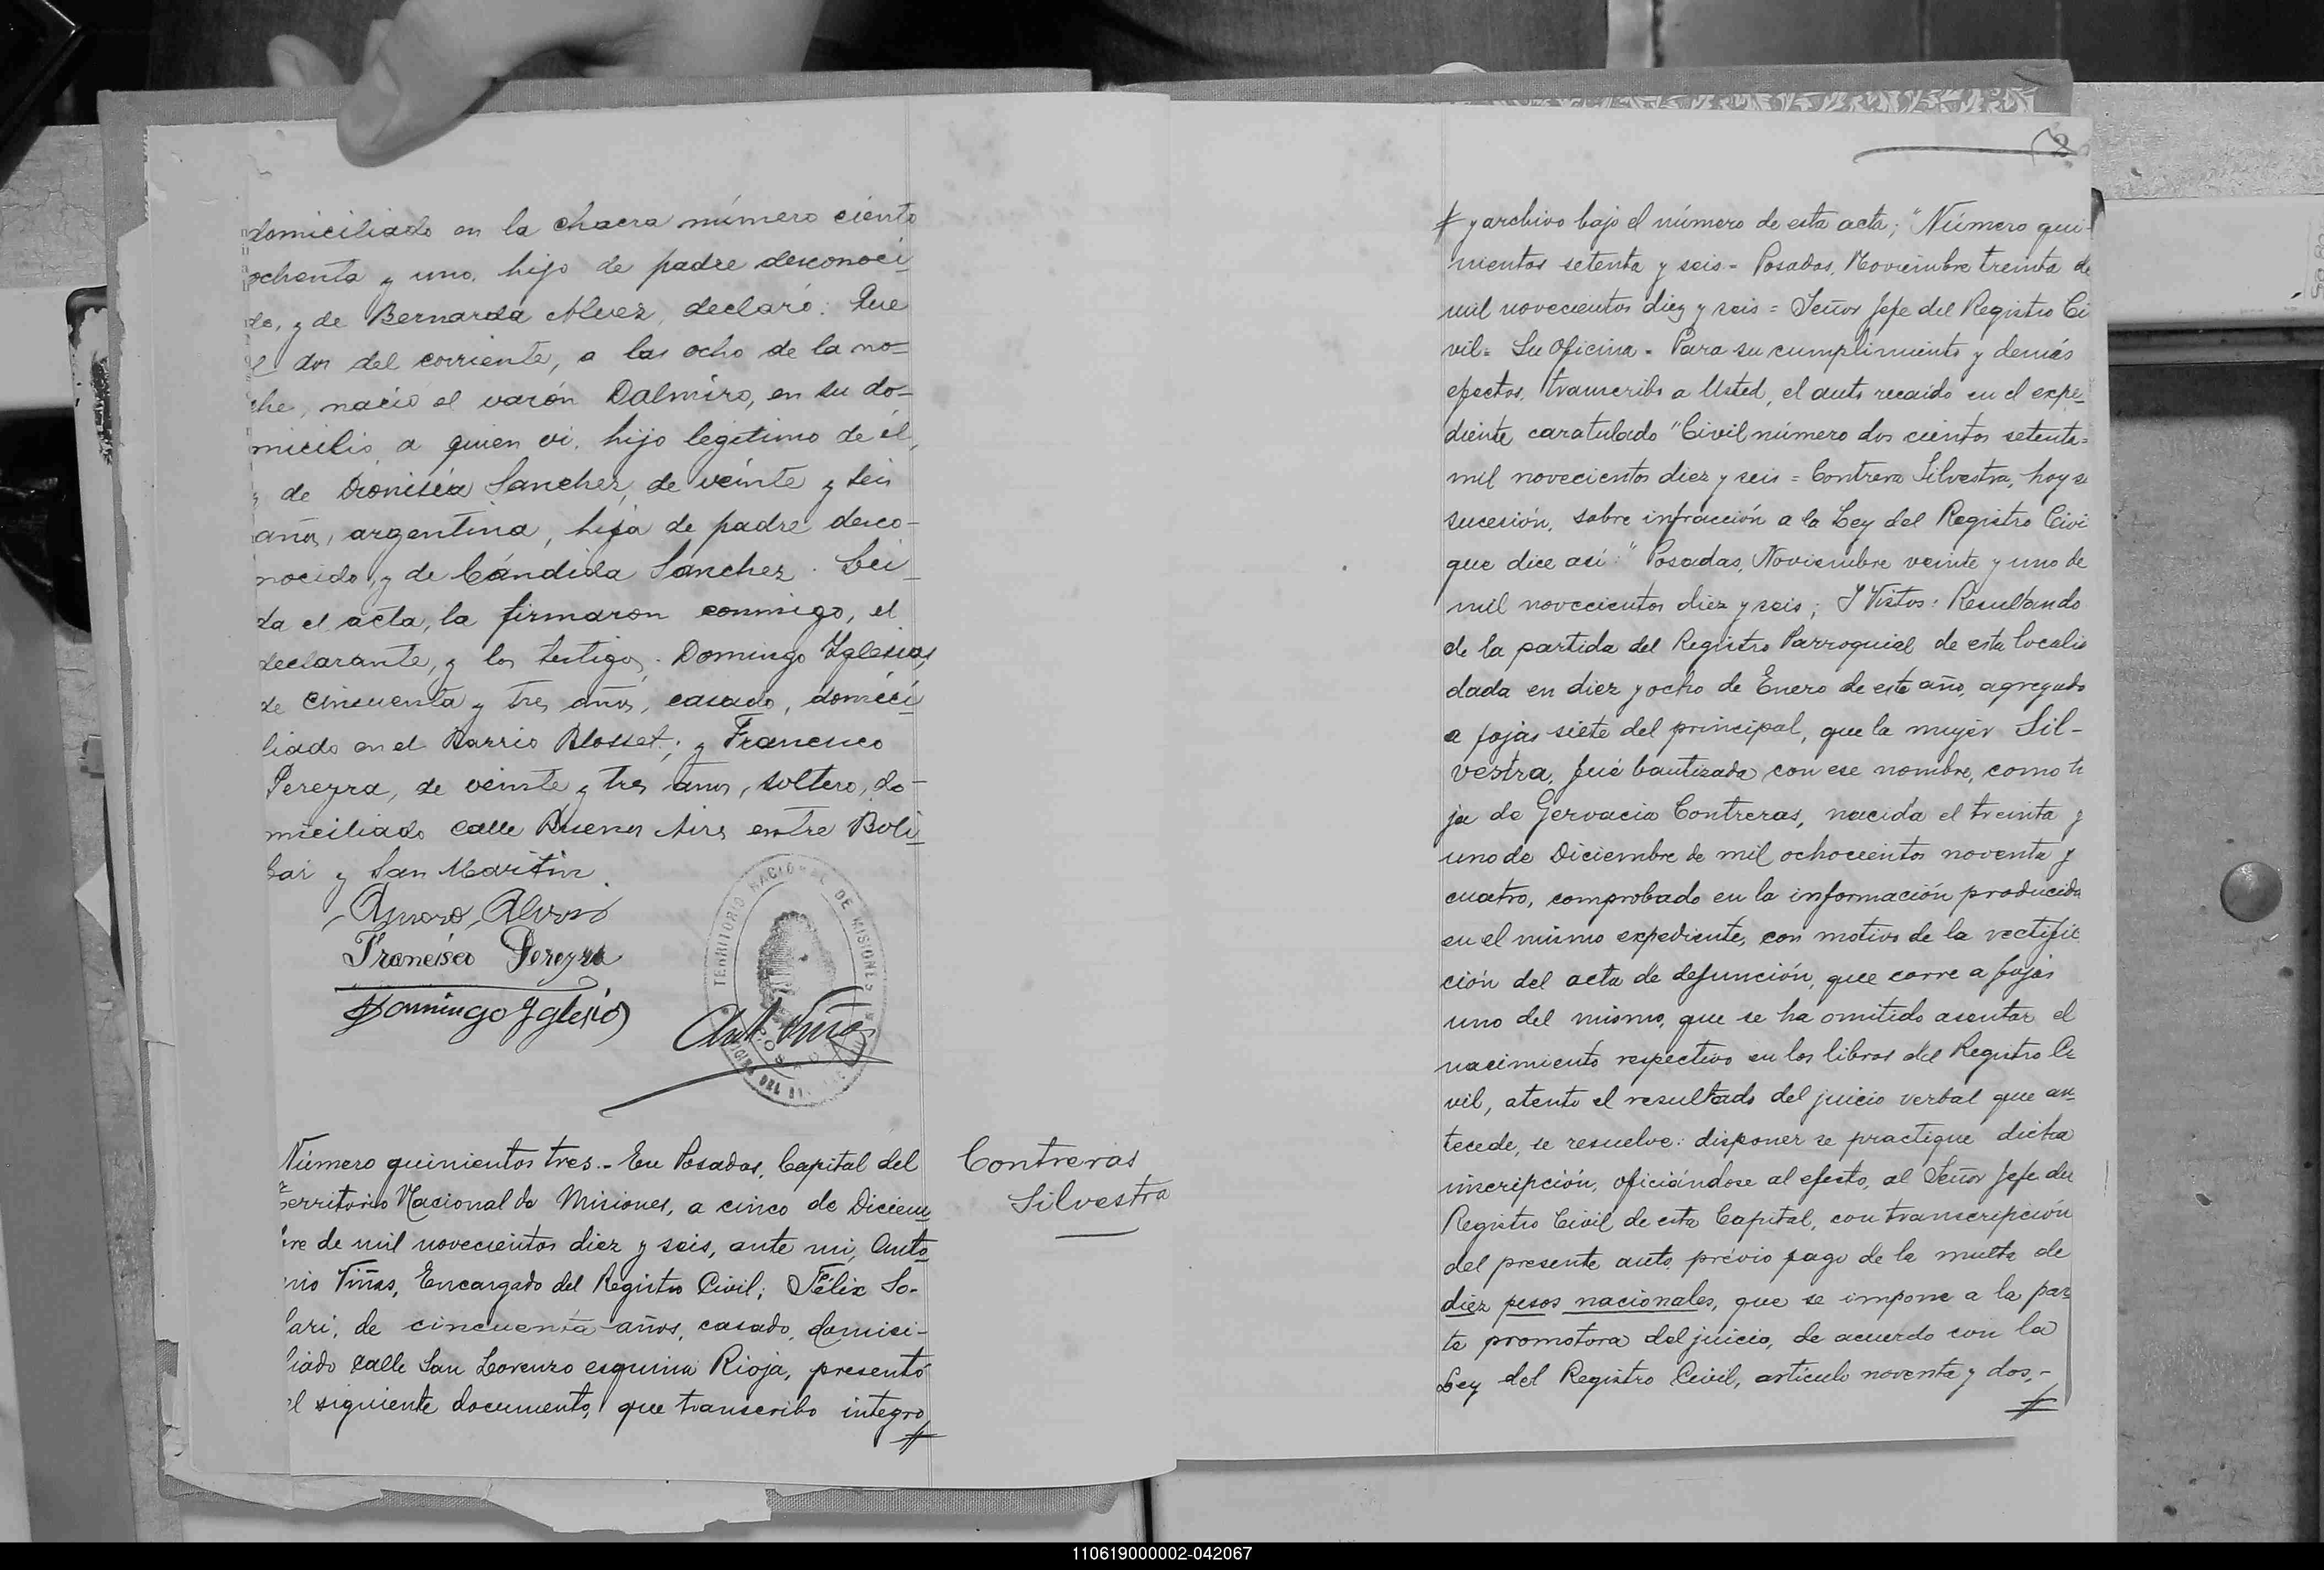 domiciliado en la chacra número ciento
ochenta y uno, hijo de padre desconoci-
do, y de Bernarda Alvez, declaró: Que
el dos del corriente, a las ocho de la no-
che, nació el varón Dalmiro, en su do-
micilio, a quien vi, hijo legítimo de él,
y de Dionisia Sanchez, de veinte y seis
años, argentina, hija de padre desco-
nocido, y de Cándida Sanchez. Lei-
da el acta, la firmaron conmigo, el
declarante, y los testigos. Domingo Yglesias,
de cincuenta y tres años, casado, domici-
liado en el Barrio Blosset; y Francisco
Pereyra, de veinte y tres años, soltero, do-
miciliado calle Buenos Aires entre Boli-
bar y San Martin.
Francisco Pereyra
Domingo Yglesias
TERRITORIO NACIONAL DE MISIONES
Número quinientos tres.- En Posadas, Capital del
Territorio Nacional de Misiones, a cinco de Diciem-
bre de mil novecientos diez y seis, ante mi, Anto-
nio Viñas, Encargado del Registro Civil; Félix So-
lari, de cincuenta años, casado, domici-
liado calle San Lorenzo esquina Rioja, presentó
el siguiente documento, que transcribo integro
#
Contreras
Silvestra
# y archivo bajo el número de esta acta; "Número qui-
nientos setenta y seis = Posadas, Noviembre treinta de
mil novecientos diez y seis = Señor Jefe del Registro Ci
vil = Su Oficina = Para su cumplimiento y demás
efectos, transcribo a Usted, el auto recaído en el expe-
diente caratulado "Civil número dos cientos setenta=
mil novecientos diez y seis = Contrera Silvestra, hoy s
sucesión, sobre infracción a la Ley del Registro Civi
que dice así: "Posadas, Noviembre veinte y uno de
mil novecientos diez y seis; Y Vistos: Resultando
de la partida del Registro Parroquial de esta localid
dada en diez y ocho de Enero de este año, agregado
a fojas siete del principal, que la mujer Sil-
vestra, fué bautizada con ese nombre, como hi
ja de Gervacia Contreras, nacida el treinta y
uno de Diciembre de mil ochocientos noventa y
cuatro, comprobado en la información producida
en el mismo expediente, con motivo de la rectific
ción del acta de defunción, que corre a fojas
uno del mismo, que se ha omitido asentar el
nacimiento respectivo en los libros del Registro Ci
vil, atento el resultado del juicio verbal que an-
tecede, se resuelve: disponer se practique dicha
inscripción, oficiándose al efecto, al Señor Jefe del
Registro Civil de esta Capital, con transcripción
del presente auto, prévio pago de la multa de
diez pesos nacionales, que se impone a la par-
te promotora del juicio, de acuerdo con la
Ley del Registro Civil, artículo noventa y dos.-
#
110619000002-042067